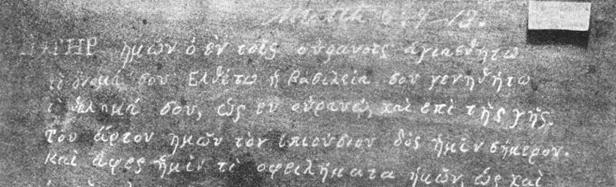 Matth 6. 9 13.
ΠΑΤΗΡ ημῶν ὁ ἐν τοῖς οὐρανοῖς ἁγιασθητω
τὸ ὄνομά σου Ελθέτω ἡ βασιλεία σου γενηθήτω
τὸ θέλημά σου, ὡς εν οὐρανῳ, καὶ επὶ τῆς γῆς.
Τον ἄρτον ημῶν τὸν επιούσιον δὸς ἡμῖν σήμερον.
Καὶ ἄφες ἡμῖν τὰ οφειλήματα ημῶν, ὡς καὶ